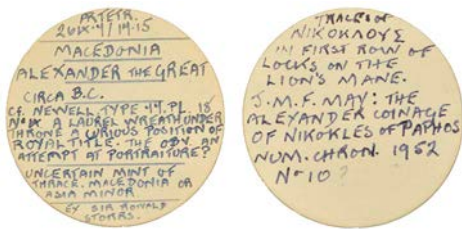 ARTETR.
MACEDONIA
ALEXANDER THE GREAT
CIRCA B.C.
CF. NEWELL. TYPE PL. 18
A LAUREL WREATH UNDER
THRONE A CURIOUS POSITION OF
ROYAL TITLE. THE OBV. AN
ATTEMPT AT PORTRAITURE?
UNCERTAIN MINT OF
THRACE. MACEDONIA OR
ASIA MINOR
EX SIR RONALD
STORRS.
TRACES OF
ΝΙΚΟΚΛΟΥΣ
IN FIRST ROW OF
LOCKS ON THE
LION'S MANE.
J.M.F. MAY: THE
ALEXANDER COINAGE
OF NIKOKLES OF PAPHOS
NUM. CHRON. 1952
No 10?